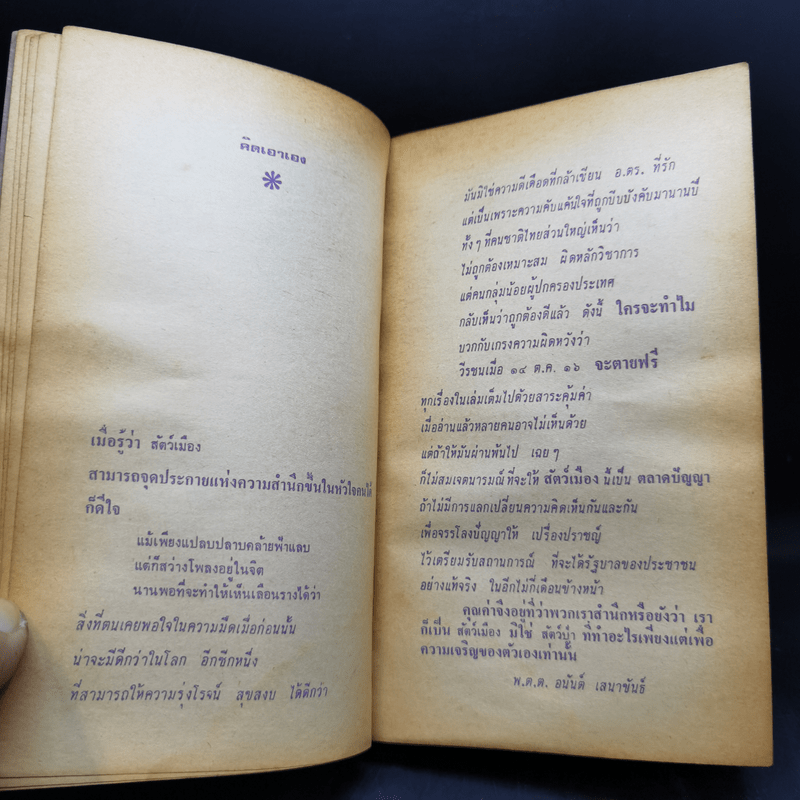 คิดเอาเอง
เมื่อรู้ว่า สัตว์เมือง
สามารถจุดประกายแห่งความสำนึกขึ้นในหัวใจคนได้
ก็ดีใจ
แม้เพียงแปลบปลาบคล้ายฟ้าแลบ
แต่ก็สว่างโพลงอยู่ในจิต
นานพอที่จะทำให้เห็นเลือนรางได้ว่า
สิ่งที่ตนเคยพอใจในความมืดเมื่อก่อนนั้น
น่าจะมีดีกว่าในโลก อีกซีกหนึ่ง
ที่สามารถให้ความรุ่งโรจน์ สุขสงบ ได้ดีกว่า
มันมิใช่ความดีเดือดที่กล้าเขียน อ.ตร. ที่รัก
แต่เป็นเพราะความคับแค้นใจที่ถูกบีบบังคับมานานปี
ทั้ง ๆ ที่คนชาติไทยส่วนใหญ่เห็นว่า
ไม่ถูกต้องเหมาะสม ผิดหลักวิชาการ
แต่คนกลุ่มน้อยผู้ปกครองประเทศ
กลับเห็นว่าถูกต้องดีแล้ว ดังนี้ ใครจะทำไม
บวกกับเกรงความผิดหวังว่า
วีรชนเมื่อ ๑๔ ต.ค. ๑๖ จะตายฟรี
ทุกเรื่องในเล่มเต็มไปด้วยสาระคุ้มค่า
เมื่ออ่านแล้วหลายคนอาจไม่เห็นด้วย
แต่ถ้าให้มันผ่านพ้นไป เฉย ๆ
ก็ไม่สมเจตนารมณ์ที่จะให้ สัตว์เมือง นี้เป็น ตลาดปัญญา
ถ้าไม่มีการแลกเปลี่ยนความคิดเห็นกันและกัน
เพื่อจรรโลงปัญญาให้ เปรื่องปราชญ์
ไว้เตรียมรับสถานการณ์ ที่จะได้รัฐบาลของประชาชน
อย่างแท้จริง ในอีกไม่กี่เดือนข้างหน้า
คุณค่าจึงอยู่ที่ว่าพวกเราสำนึกหรือยังว่า เรา
ก็เป็น สัตว์เมือง มิใช่ สัตว์ป่า ที่ทำอะไรเพียงแต่เพื่อ
ความเจริญของตัวเองเท่านั้น
พ.ต.ต. อนันต์ เสนาขันธ์